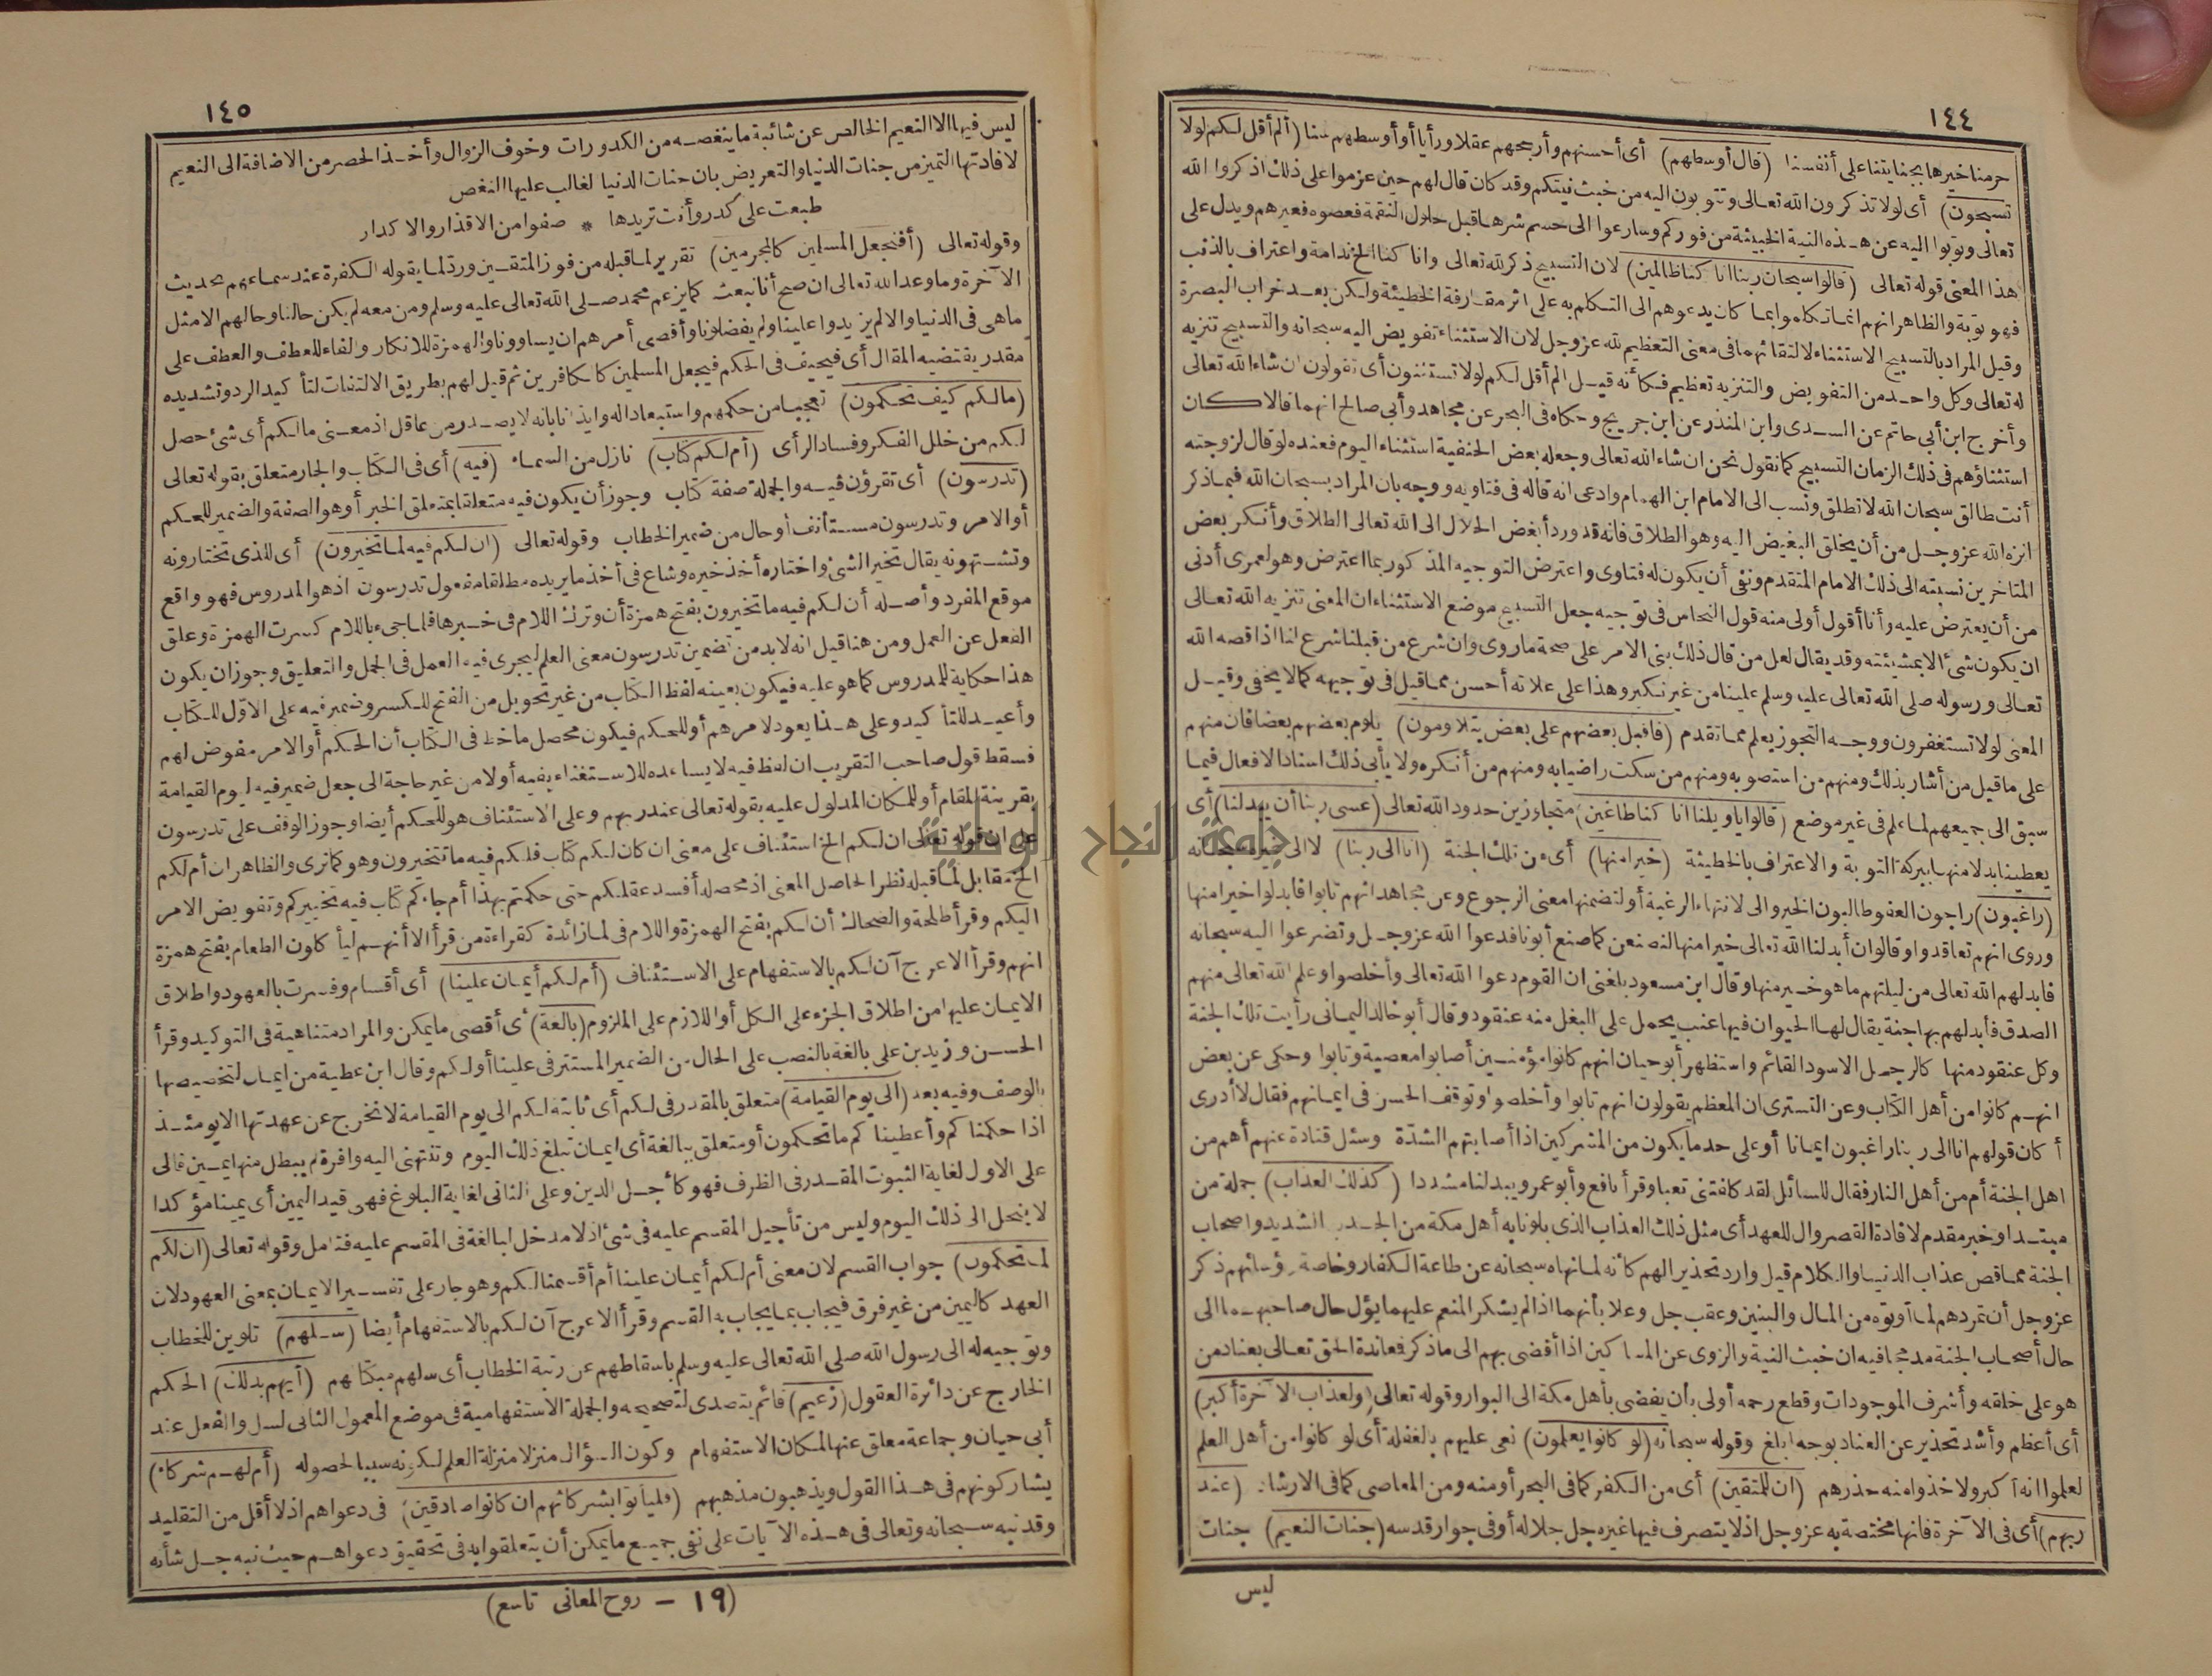 ١٤٤
حرمنا خيرها بجنايتنا على أنفسنا (قال أوسطهم) أى أحسنهم وأرجحهم عقلا ورأيا أو أوسطهم سنا (ألم أقل لكم لولا
تسبحون) أى لولا تذكرون الله تعالى وتتوبون اليه من خبث نيتكم وقد كان قال لهم حين عزموا على ذلك اذكروا الله
تعالى وتوبوا اليه عن هذه النية الخبيثة من فوركم وسارعوا الى حسم شرها قبل حلول النقمة فعصوه فعيرهم ويدل على
هذا المعنى قوله تعالى (قالوا سبحان ربنا انا كنا ظالمين) لان التسبيح ذكر لله تعالى وانا كنا الخ ندامة واعتراف بالذنب
فهو توبة والظاهر انهم انما تكلموا بما كان يدعوهم الى التكلم به على اثر مقارفة الخطيئة ولكن بعد خراب البصرة
وقيل المراد بالتسبيح الاستثناء لالتقائهما فى معنى التعظيم لله عز وجل لان الاستثناء تفويض اليه سبحانه والتسبيح تنزيه
له تعالى وكل واحد من التفويض والتنزيه تعظيم فكأنه قيل ألم أقل لكم لولا تستثنون أى تقولون ان شاء الله تعالى
وأخرج ابن أبى حاتم عن السدى وابن المنذر عن ابن جريج وحكاه فى البحر عن مجاهد وأبى صالح انهما قالا كان
استثناؤهم فى ذلك الزمان التسبيح كما نقول نحن ان شاء الله تعالى وجعله بعض الحنفية استثناء اليوم فعنده لو قال لزوجته
أنت طالق سبحان الله لا تطلق ونسب الى الامام ابن الهمام وادعى انه قاله فى فتاويه ووجه بان المراد بسبحان الله فيما ذكر
انزه الله عز وجل من أن يخلق البغيض اليه وهو الطلاق فانه قد ورد أبغض الحلال الى الله تعالى الطلاق وأنكر بعض
المتاخرين نسبته الى ذلك الامام المتقدم ونفى أن يكون له فتاوى واعترض التوجيه المذكور بما اعترض وهو لعمرى أدنى
من أن يعترض عليه وأنا أقول أولى منه قول النحاس فى توجيه جعل التسبيح موضع الاستثناء ان المعنى تنزيه الله تعالى
ان يكون شئ الا بمشيئته وقد يقال لعل من قال ذلك بنى الامر على صحة ما روى وان شرع من قبلنا شرع لنا اذا قصه الله
تعالى ورسوله صلى الله تعالى عليه وسلم علينا من غير نكير وهذا على علاته أحسن مما قيل فى توجيهه كما لا يخفى وقيل
المعنى لولا تستغفرون ووجه التجوز يعلم مما تقدم (فاقبل بعضهم على بعض يتلاومون) يلوم بعضهم بعضا فان منهم
على ما قيل من أشار بذلك ومنهم من استصوبه ومنهم من سكت راضيا به ومنهم من أنكره ولا يأبى ذلك اسناد الافعال فيما
سبق الى جميعهم لما علم فى غير موضع (قالوا يا ويلنا انا كنا طاغين) متجاوزين حدود الله تعالى (عسى ربنا أن يبدلنا) أى
يعطينا بدلا منها ببركة التوبة والاعتراف بالخطيئة (خيرا منها) أى من تلك الجنة (انا الى ربنا) لا الى غيره سبحانه
(راغبون) راجون العفو طالبون الخير والى لانتهاء الرغبة أو لتضمنها معنى الرجوع وعن مجاهد انهم تابوا فابدلوا خيرا منها
وروى انهم تعاقدوا وقالوا ان أبدلنا الله تعالى خيرا منها لنصنعن كما صنع أبونا فدعوا الله عز وجل وتضرعوا اليه سبحانه
فابدلهم الله تعالى من ليلتهم ما هو خير منها وقال ابن مسعود بلغنى ان القوم دعوا الله تعالى وأخلصوا وعلم الله تعالى منهم
الصدق فأبدلهم بها جنة يقال لها الحيوان فيها عنب يحمل على البغل منه عنقود وقال أبو خالد اليمانى رأيت تلك الجنة
وكل عنقود منها كالرجل الاسود القائم واستظهر أبو حيان انهم كانوا مؤمنين أصابوا معصية وتابوا وحكى عن بعض
انهم كانوا من أهل الكتاب وعن التسترى ان المعظم يقولون انهم تابوا وأخلصوا وتوقف الحسن فى ايمانهم فقال لا أدرى
أكان قولهم انا الى ربنا راغبون ايمانا أو على حد ما يكون من المشركين اذا أصابتهم الشدّة وسئل قتادة عنهم أهم من
اهل الجنة أم من أهل النار فقال للسائل لقد كلفتنى تعبا وقرأ نافع وأبو عمرو يبدلنا مشددا (كذلك العذاب) جملة من
مبتدا وخبر مقدم لافادة القصر وال للعهد أى مثل ذلك العذاب الذى بلونا به أهل مكة من الجدب الشديد وأصحاب
الجنة مما قص عذاب الدنيا والكلام قيل وارد تحذيرا لهم كأنه لما نهاه سبحانه عن طاعة الكفار وخاصة رؤسائهم ذكر
عز وجل أن تمردهم لما أوتوه من المال والبنين وعقب جل وعلا بأنهما اذا لم يشكر المنعم عليهما يؤل حال صاحبهما الى
حال أصحاب الجنة مدمجا فيه ان خبث النية والزوى عن المساكين اذا أفضى بهم الى ما ذكر فعاندة الحق تعالى بعناد من
هو على خلقه وأشرف الموجودات وقطع رحمه أولى بأن يفضى بأهل مكة الى البوار وقوله تعالى (ولعذاب الآخرة أكبر)
أى أعظم وأشد تحذير عن العناد بوجه أبلغ وقوله سبحانه (لو كانوا يعلمون) نعى عليهم بالغفلة أى لو كانوا من أهل العلم
لعلموا انه أكبر ولاخذوا منه حذرهم (ان للمتقين) أى من الكفر كما فى البحر أو منه ومن المعاصى كما فى الارشاد (عند
ربهم) أى فى الآخرة فانها مختصة به عز وجل اذ لا يتصرف فيها غيره جل جلاله أو فى جوار قدسه (جنات النعيم) جنات
ليس
١٤٥
ليس فيها الا النعيم الخالص عن شائبة ما ينغصه من الكدورات وخوف الزوال وأخذ الحصر من الاضافة الى النعيم
لافادتها التميز من جنات الدنيا والتعريض بان جنات الدنيا لغالب عليها النغص
طبعت على كدر وأنت تريدها * صفوا من الاقذار والاكدار
وقوله تعالى (أفنجعل المسلمين كالمجرمين) تقرير لما قبله من فوز المتقين ورد لما يقوله الكفرة عند سماعهم بحديث
الآخرة وما وعد الله تعالى ان صح أنا نبعث كما يزعم محمد صلى الله تعالى عليه وسلم ومن معه لم يكن حالنا وحالهم الا مثل
ما هى فى الدنيا والا لم يزيدوا علينا ولم يفضلونا وأقصى أمرهم ان يساوونا والهمزة للانكار والفاء للعطف والعطف على
مقدر يقتضيه المقال أى فيحيف فى الحكم فيجعل المسلمين كالكافرين ثم قيل لهم بطريق الالتفات لتأكيد الرد وتشديده
(مالكم كيف تحكمون) تعجيبا من حكمهم واستبعادا له وايذانا بانه لا يصدر من عاقل اذ معنى مالكم أى شئ حصل
لكم من خلل الفكر وفساد الرأى (أم لكم كتاب) نازل من السماء (فيه) أى فى الكتاب والجار متعلق بقوله تعالى
(تدرسون) أى تقرؤن فيه والجملة صفة كتاب وجوز أن يكون فيه متعلقا بمتعلق الخبر أو هو الصفة والضمير للحكم
أو الامر وتدرسون مستأنف أو حال من ضمير الخطاب وقوله تعالى (ان لكم فيه لما تخيرون) أى للذى تختارونه
وتشتهونه يقال تخير الشئ واختاره أخذ خيره وشاع فى أخذ ما يريده مطلقا مفعول تدرسون اذ هو المدروس فهو واقع
موقع المفرد وأصله أن لكم فيه ما تخيرون بفتح همزة أن وترك اللام فى خبرها فلما جىء باللام كسرت الهمزة وعلق
الفعل عن العمل ومن هنا قيل انه لا بد من تضمين تدرسون معنى العلم ليجرى فيه العمل فى الجمل والتعليق وجوز ان يكون
هذا حكاية للمدروس كما هو عليه فيكون بعينه لفظ الكتاب من غير تحويل من الفتح للكسر وضمير فيه على الاوّل للكتاب
وأعيد للتأكيد وعلى هذا يعود لامرهم أو للحكم فيكون محصل ما خط فى الكتاب أن الحكم أو الامر مفوض لهم
فسقط قول صاحب التقريب ان لفظ فيه لا يساعده للاستغناء بفيه أولا من غير حاجة الى جعل ضمير فيه ليوم القيامة
بقرينة المقام أو للمكان المدلول عليه بقوله تعالى عند ربهم وعلى الاستئناف هو للحكم أيضا وجوز الوقف على تدرسون
على ان قوله تعالى ان لكم الخ استئناف على معنى ان كان لكم كتاب فلكم فيه ما تتخيرون وهو كما ترى والظاهر ان أم لكم
الخ مقابل لما قبله نظرا لحاصل المعنى اذ محصله أفسد عقلكم حتى حكمتم بهذا أم جاءكم كتاب فيه تخييركم وتفويض الامر
اليكم وقرأ طلحة والضحاك أن لكم بفتح الهمزة واللام فى لما زائدة كقراءة من قرأ الا أنهم ليأكلون الطعام بفتح همزة
انهم وقرأ الاعرج آن لكم بالاستفهام على الاستئناف (أم لكم أيمان علينا) أى أقسام وفسرت بالعهود واطلاق
الايمان عليها من اطلاق الجزء على الكل أو اللازم على الملزوم (بالغة) أى أقصى ما يمكن والمراد متناهية فى التوكيد وقرأ
الحسن وزيد بن على بالغة بالنصب على الحال من الضمير المستتر فى علينا أو لكم وقال ابن عطية من ايمان لتخصيصها
بالوصف وفيه بعد (الى يوم القيامة) متعلق بالمقدر فى لكم أى ثابتة لكم الى يوم القيامة لا نخرج عن عهدتها الا يومئذ
اذا حكمناكم وأعطيناكم ما تحكمون أو متعلق ببالغة أى ايمان تبلغ ذلك اليوم وتنتهى اليه وافرة لم يبطل منها يمين فالى
على الاول لغاية الثبوت المقدر فى الظرف فهو كأجل الدين وعلى الثانى لغاية البلوغ فهى قيد اليمين أى يمينا مؤكدا
لا ينحل الى ذلك اليوم وليس من تأجيل المقسم عليه فى شئ اذ لا مدخل لبالغة فى المقسم عليه فتامل وقوله تعالى (ان لكم
لما تحكمون) جواب القسم لان معنى أم لكم أيمان علينا أم أقسمنا لكم وهو جار على تفسير الايمان بمعنى العهود لان
العهد كاليمين من غير فرق فيجاب بما يجاب به القسم وقرأ الاعرج آن لكم بالاستفهام أيضا (سلهم) تلوين للخطاب
وتوجيه له الى رسول الله صلى الله تعالى عليه وسلم باسقاطهم عن رتبة الخطاب أى سلهم مبكتا لهم (أيهم بذلك) الحكم
الخارج عن دائرة العقول (زعيم) قائم يتصدى لتصحيحه والجملة الاستفهامية فى موضع المعمول الثانى لسل والفعل عند
أبى حيان وجماعة معلق عنها لمكان الاستفهام وكون السؤال منزلا منزلة العلم لكونه سببا لحصوله (أم لهم شركاء)
يشاركونهم فى هذا القول ويذهبون مذهبهم (فليأتوا بشركائهم ان كانوا صادقين) فى دعواهم اذ لا أقل من التقليد
وقد نبه سبحانه وتعالى فى هذه الآيات على نفى جميع ما يمكن أن يتعلقوا به فى تحقيق دعواهم حيث نبه جل شأنه
(١٩ - روح المعانى تاسع)
جامعة النجاح الوطنية